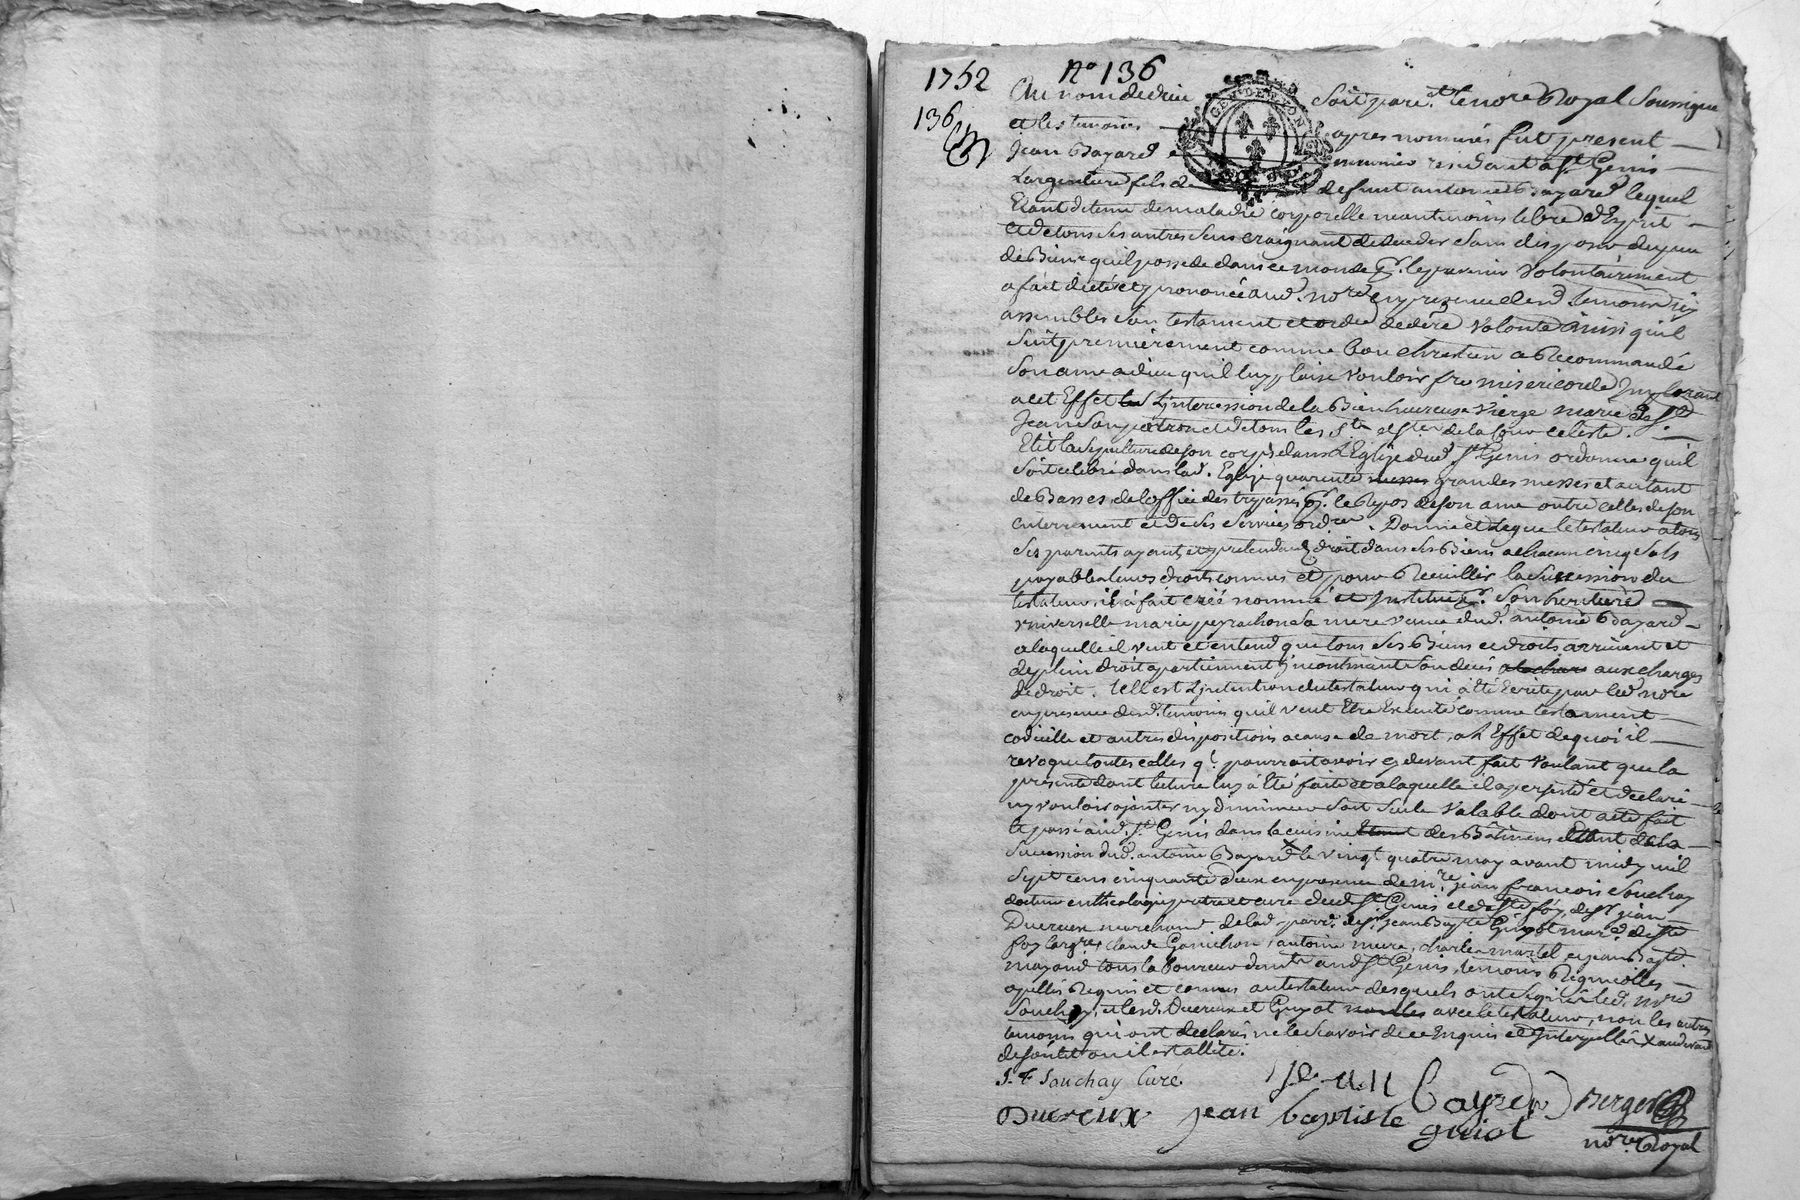 1752
N° 136
136
GEN. DE LYON
Au nom de dieu Soit par d.t le no.re Royal Soussigné
et les temoins apres nommés fut present
Jean Bayard resident a S.t Genis
Largentiere fils de defunt antoine Bayard lequel
Etant detenu de maladie corporelle neantmoins libre d'Esprit
et de tous ses autres sens craignant de deceder sans disposer du peu
de Biens qu'il possede dans ce monde p.r le prevenir volontairement
a fait dicté et prononcé aud. no.re en presence desd. temoins icy
assembles son testament et ord.e de der.e volonté ainsi quil
suit premierement comme bon chretien a Recommandé
son ame a dieu qu'il luy plaise vouloir f.re misericorde Implorant
a cet Effet L'intercession de la Bienheureuse Vierge marie de S.t
Jean son patron et de tous les S.ts et S.tes de la Cour celeste.
Elit la sepulture de son corps dans L'Eglise dud. S.t Genis ordonne quil
soit celebré dans lad. Eglise quarente messes grandes messes et autant
de Basses de l'office des trepassés p.r le Repos de son ame outre celles de son
enterrement et de ses services ord.res. Donne et Legue le testateur a tous
ses parents ayant et pretendant droit dans ses Biens a chacun cinq sols
payables leurs droits connus et pour Recuillir la succession du
testateur il à fait créé nommé et Institué p.r son heritiere
universelle marie peyrachon sa mere veuve dud. antoine Bayard
a laquelle il veut et entend que tous ses Biens et droits arrivent et
de plein droit apartiennent incontinant son decès a la char aux charges
de droit. Telle est L'intention du testateur qui a été Ecrite par led. no.re
en presence desd. temoins qu'il veut Etre Executé comme testament
codicille et autres dispositions a cause de mort, a L'Effet de quoi il
revoque toutes celles q.l pourroit avoir cy devant fait Voulant que la
presente dont lecture luy à Eté faite et a laquelle il a persisté et declaré
ny vouloir ajouter ny diminuer soit seule Valable dont acte fait
et passé aud. S.t Genis dans la cuisine des Bâtimens de la
succession dud. antoine Bayard le vingt quatre may avant midy mil
sept cens cinquante deux en presence de m.re jean francois Souchay
docteur en theologie pretre et curé dud. S.t Genis et de S.te foy, de s.r jean
Ducreux marchand de lad. parr. de s.r jean Bap.te Guyot mar.d de S.te
foy Larg.re claude Ganichon, antoine mure, charle martel et jean Bap.te
mayoud tous laboureur dem.t aud. S.t Genis, temoins
apellés Requis et connus au testateur desquels ont signé led. m.re
Souchay, et lesd. Ducreux et Guyot avec le testateur, non les autres
temoins qui ont declaré ne le sçavoir de ce Enquis et Interpellés X au devant
de son lit ou il est allité.
J. F Souchay Curé.
Bayard
Berger
Ducreux jean baptiste guiot
no.re Royal